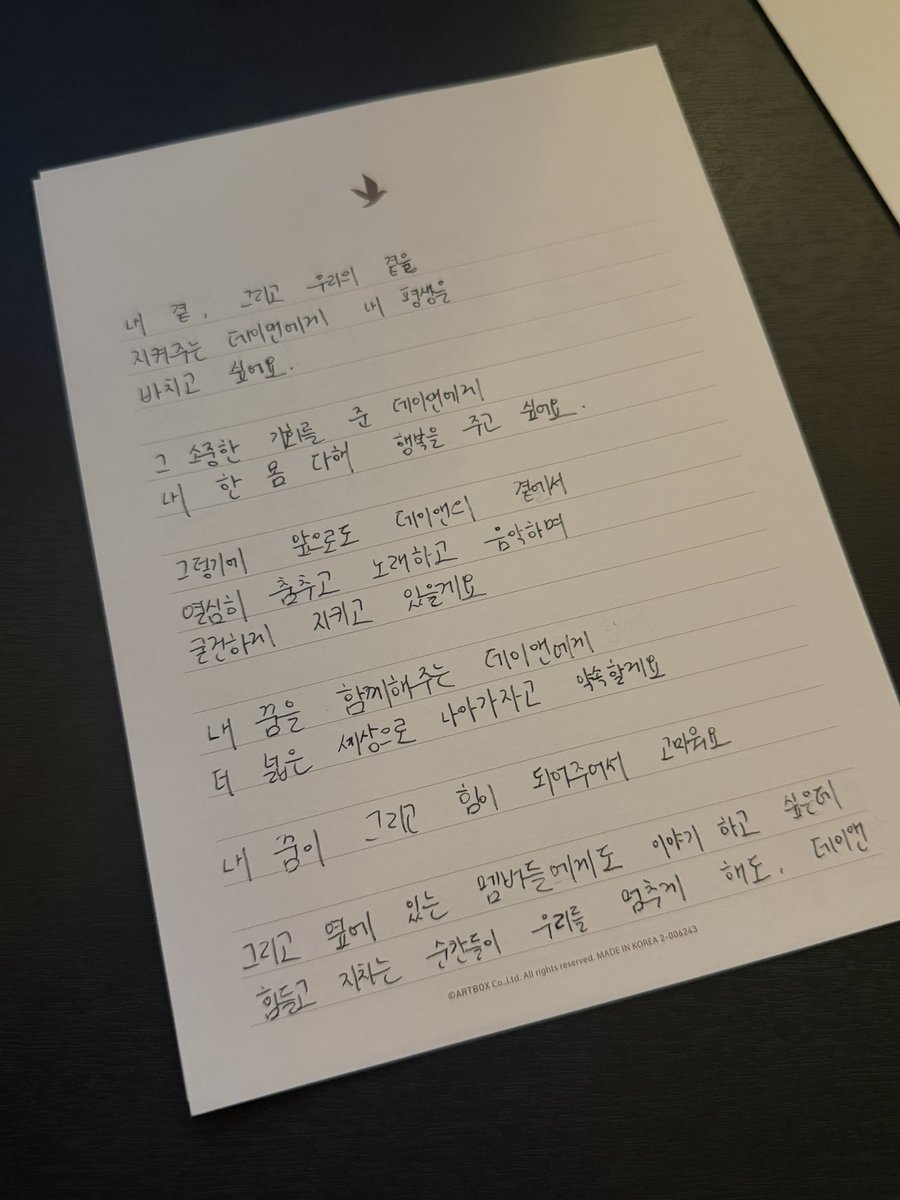 내 곁, 그리고 우리의 곁을
지켜주는 데이앤에게 내 평생을
바치고 싶어요.
그 소중한 기회를 준 데이앤에게
내 한 몸 다해 행복을 주고 싶어요.
그렇기에 앞으로도 데이앤의 곁에서
열심히 춤추고 노래하고 음악하며
굳건하게 지키고 있을게요
내 꿈을 함께해주는 데이앤에게
더 넓은 세상으로 나아가자고 약속할게요
내 꿈이 그리고 힘이 되어주어서 고마워요
그리고 옆에 있는 멤버들에게도 이야기 하고 싶은데
힘들고 지치는 순간들이 우리를 멈추게 해도, 데이앤
©ARTBOX Co.,Ltd. All rights reserved. MADE IN KOREA 2-006243